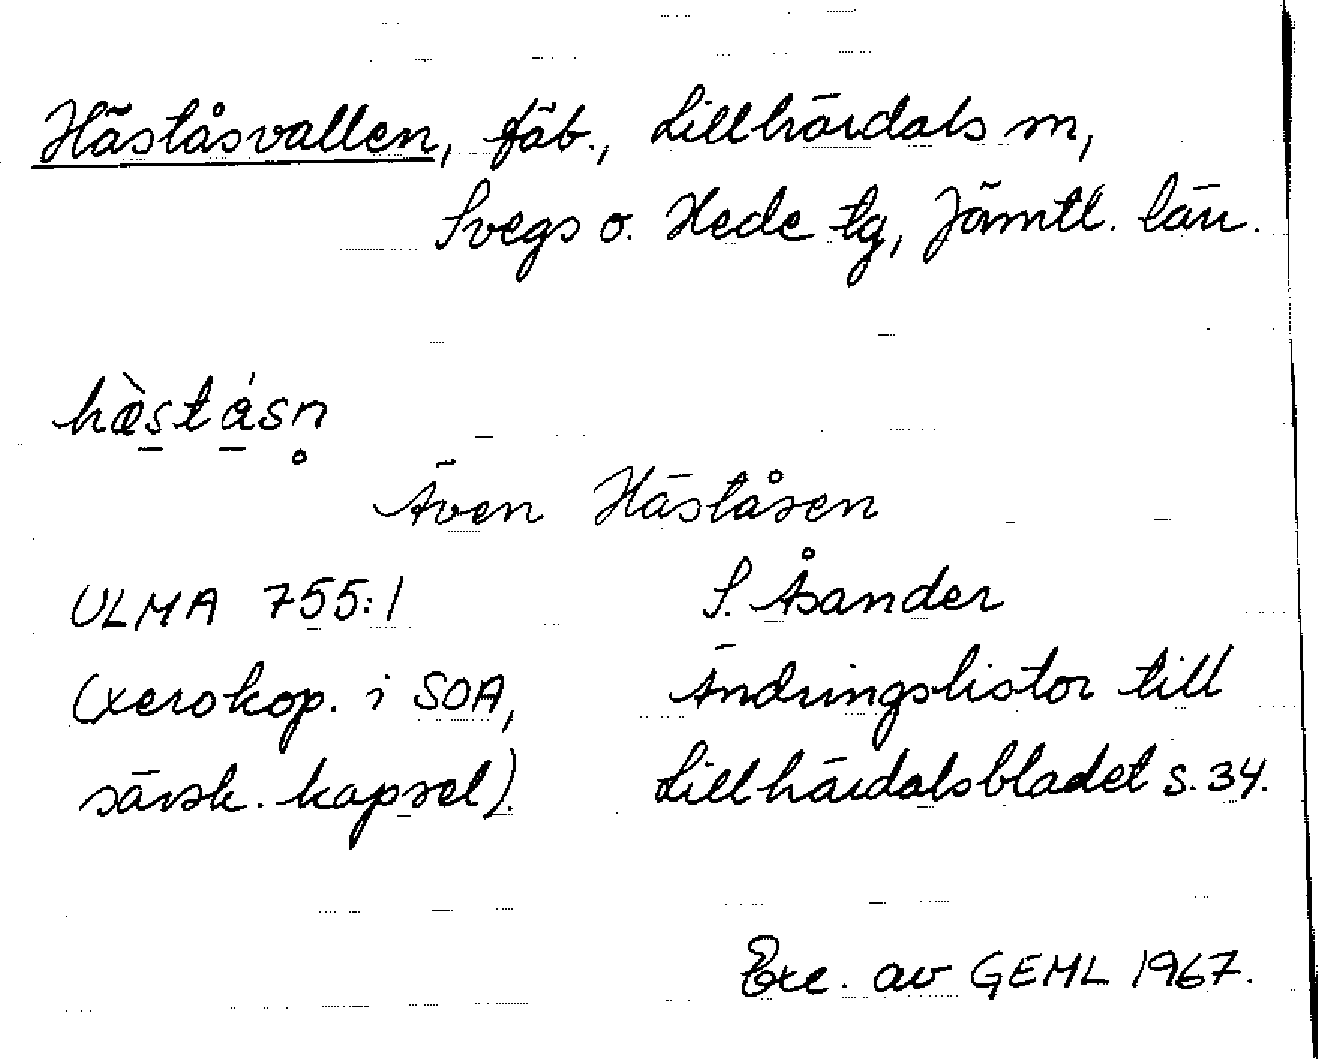 Häståsvallen, fäb., Lillhärdals sn,
Svegs o. Hede tg, Jämtl. län.
hæ̀stásn̥
Även Häståsen
ULMA 755:1 S. Åsander
(xerokop. i SOA, Ändringslistor till
särsk. kapsel). Lillhärdalsbladet s. 34.
Exc. av GEML 1967.